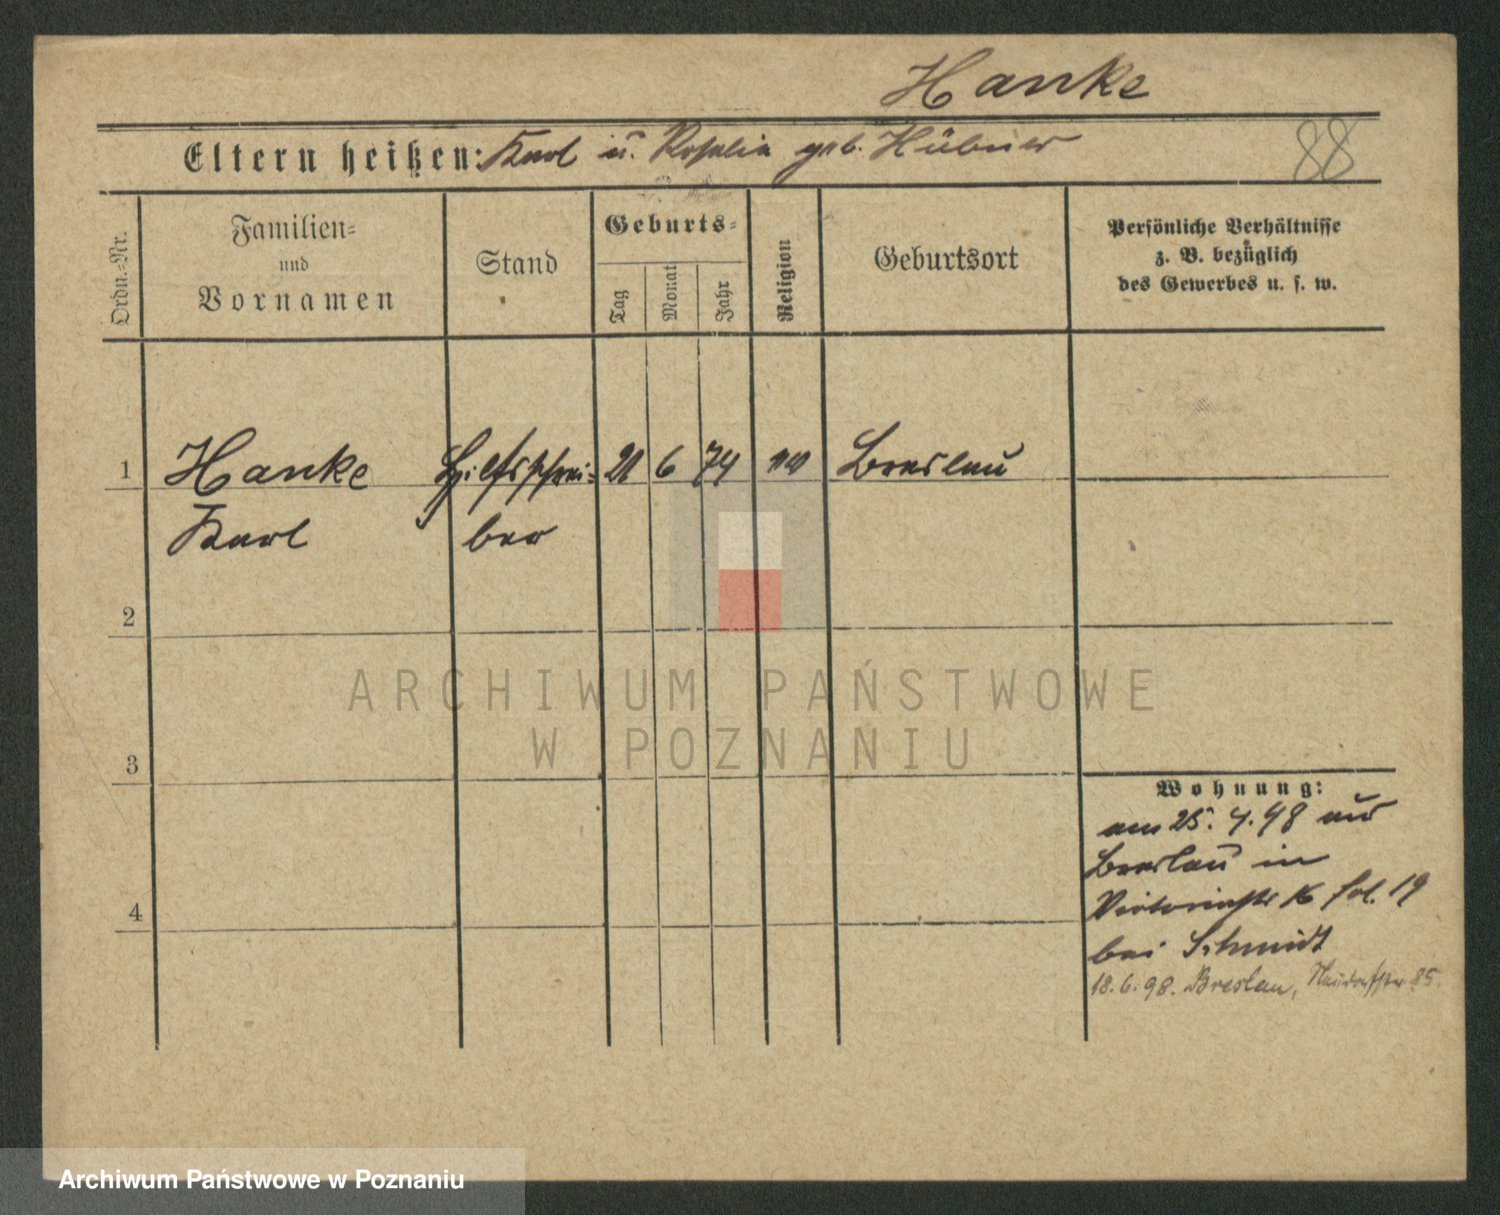 Hanke
Eltern heißen: Karl u. Rosalia geb. Hübner
88
Ordn.-Nr.
Familien-
und
Vornamen
Stand
Geburts-
Tag
Monat
Jahr
Religion
Geburtsort
Persönliche Verhältnisse
z. B. bezüglich
des Gewerbes u. s. w.
1 Hanke Hilfsschrei- 21 6 74 Breslau
Karl ber
2
ARCHIWUM PAŃSTWOWE
W POZNANIU
3
Wohnung:
am 25. 4. 98 aus
Breslau in
Victoriastr 16 fol. 19
4
bei Schmidt
18. 6. 98. Breslau, 85.
Archiwum Państwowe w Poznaniu